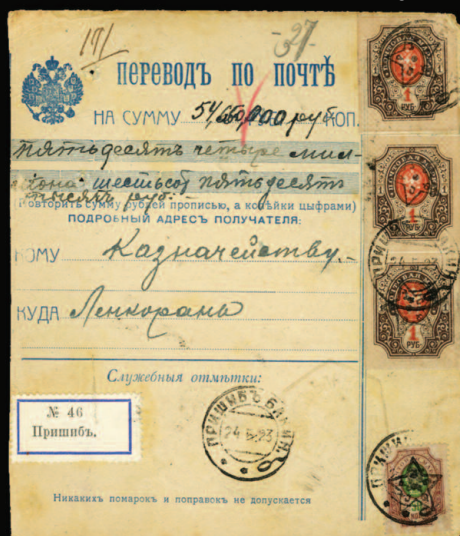 171
37
ПЕРЕВОДЪ ПО ПОЧТѢ
НА СУММУ 54,650,000 руб. КОП.
пятьдесятъ четыре мил-
лiона шестьсот пятьдесятъ
тысячъ руб.
(повторить сумму рублей прописью, а копѣйки цыфрами)
ПОДРОБНЫЙ АДРЕСЪ ПОЛУЧАТЕЛЯ:
КОМУ Казначейству.
КУДА Ленкорань
Служебныя отмѣтки:
№ 46
Пришибъ.
ПРИШИБЪ БАКИН.
24 5 23
Никакихъ помарокъ и поправокъ не допускается
1
РУБ.
1
РУБ.
ПРИШИБЪ
1
РУБ.
ПРИШИ